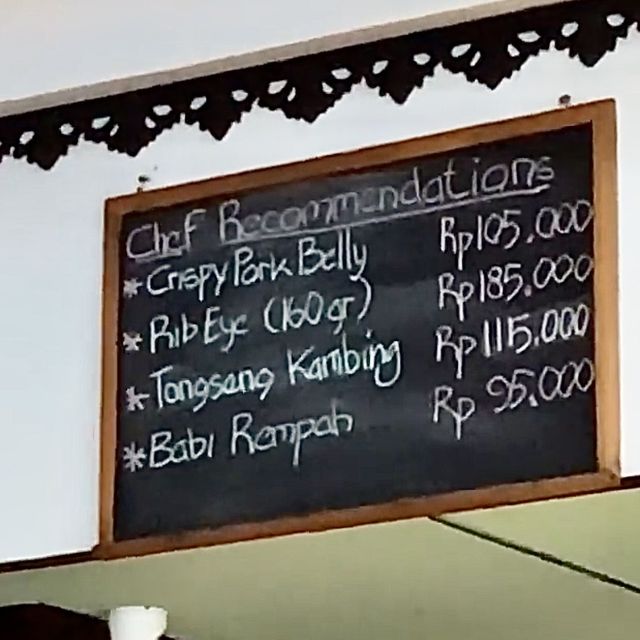 Chef Recommendations
* Crispy Pork Belly Rp105.000
* Rib Eye (160 gr) Rp185.000
* Tongseng Kambing Rp115.000
* Babi Rempah Rp 95.000